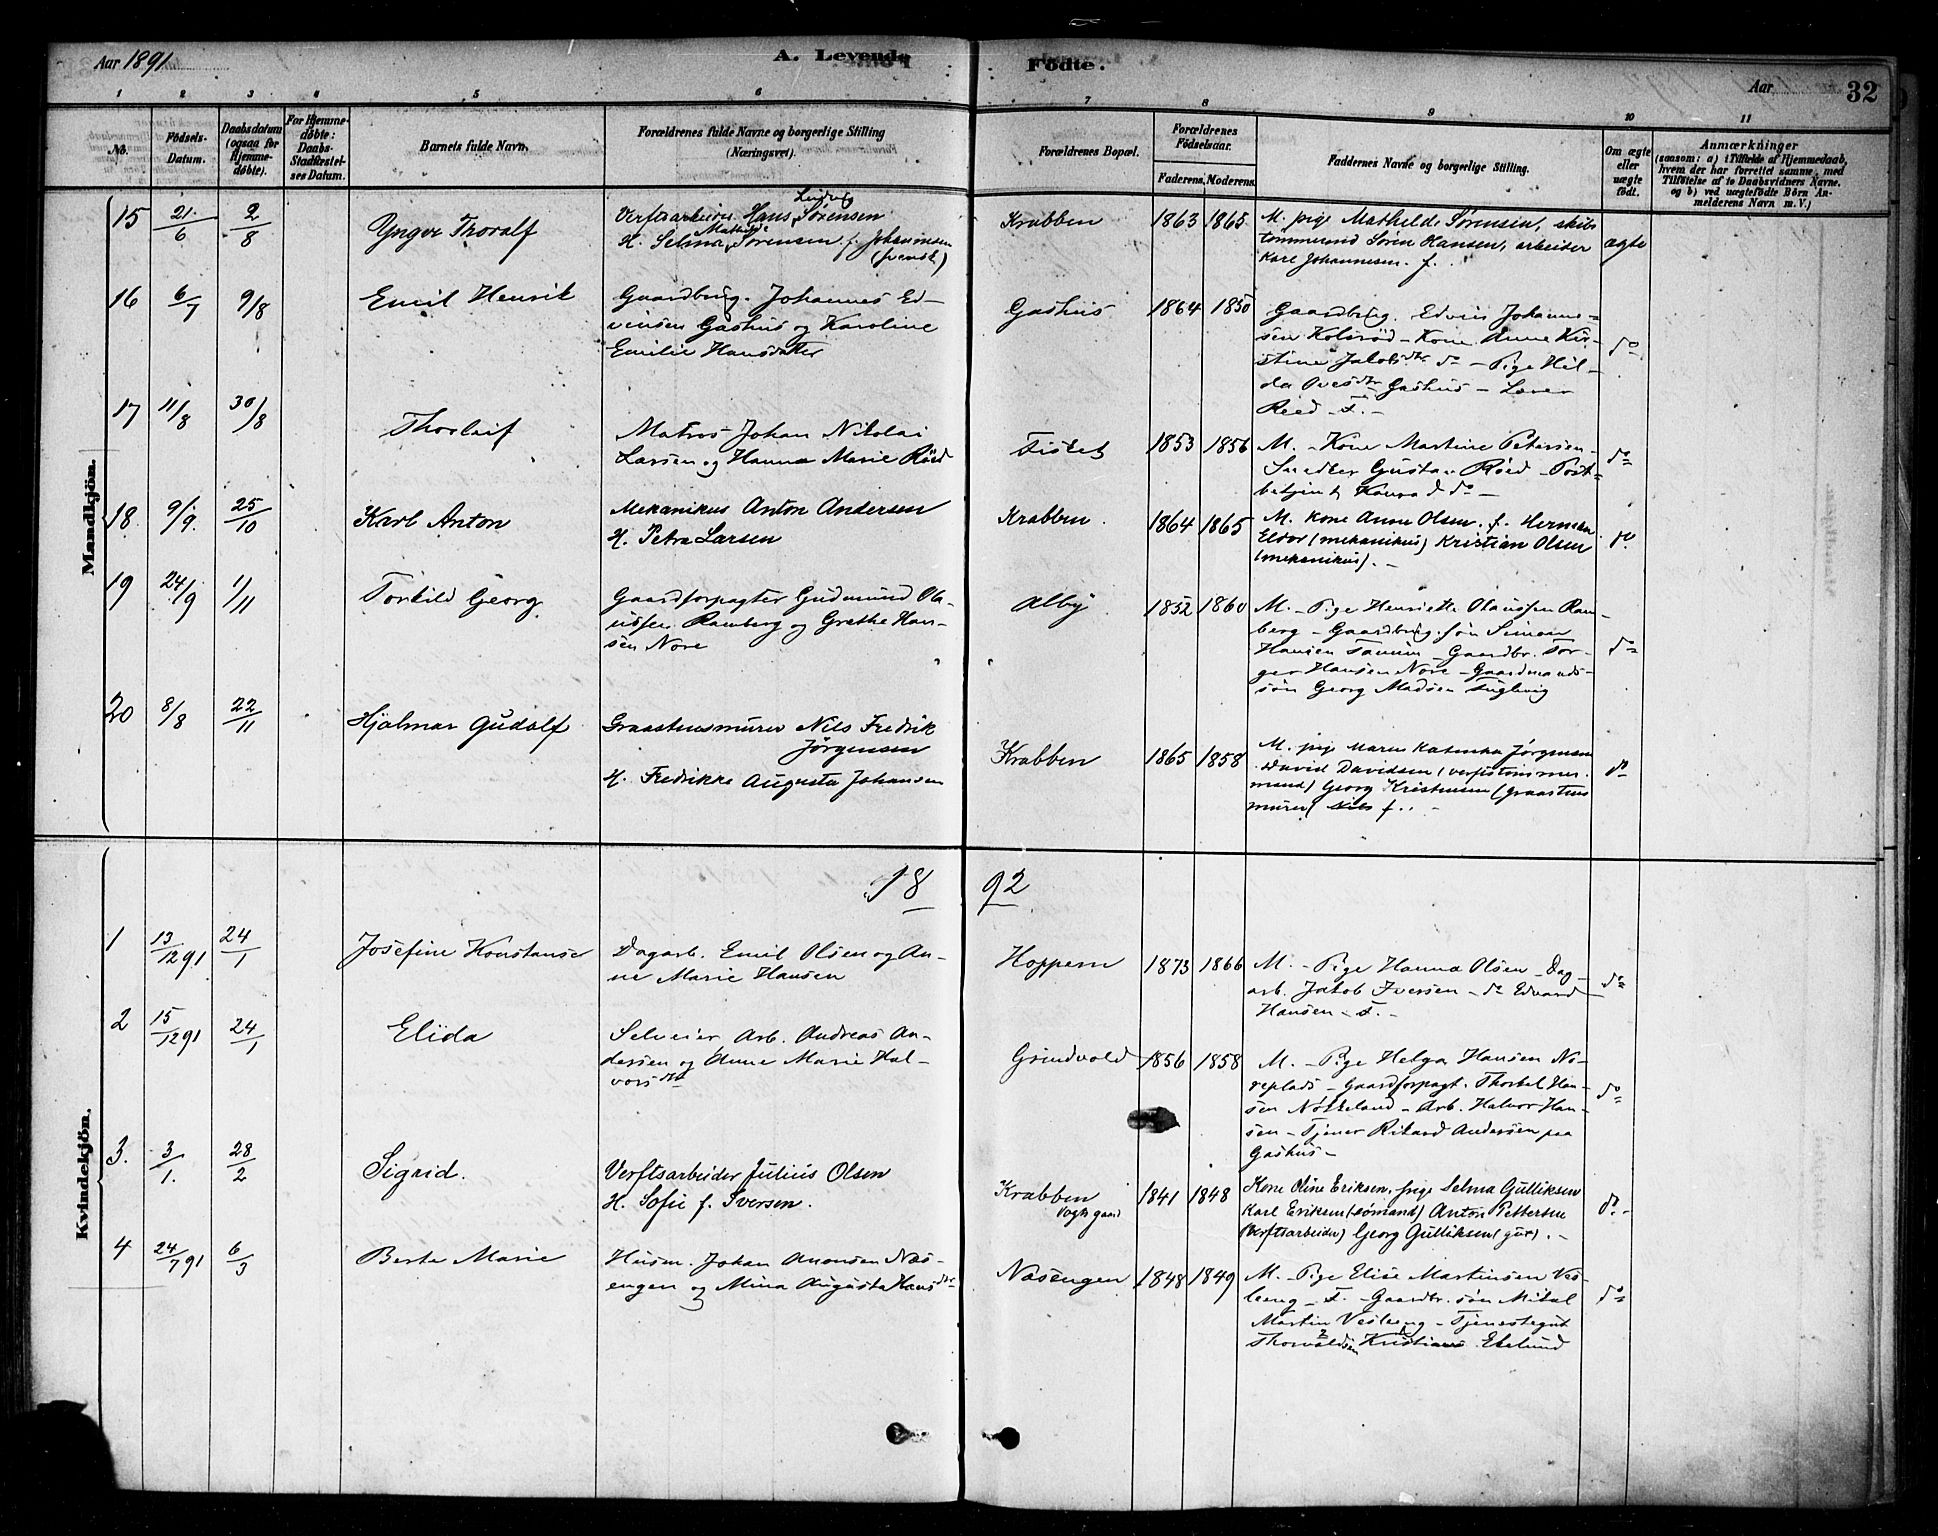 Aar 1891
A. Levende Födte.
Aar
32
1 2 3 4 5 6 7 8 9 10 11
No.
Fødsels-
Datum.
Daabsdatum
(ogsaa for
Hjemme-
døbte).
For Hjemme-
døbte:
Daabs-
Stadfæstel-
ses Datum.
Barnets fulde Navn.
Forældrenes fulde Navne og borgerlige Stilling
(Næringsvei).
Forældrenes Bopæl.
Forældrenes
Fødselsaar.
Faderens. Moderens.
Faddernes Navne og borgerlige Stilling.
Om ægte
eller
uægte
født.
Anmærkninger
(saasom: a) i Tilfælde af Hjemmedaab,
hvem der har forrettet samme, med
Tilføielse af to Daabsvidners Navne.
og b) ved uægtefødte Börn An-
melderens Navn m. V.)
Mandkjön.
15 21/6 2/8 Yngve Thoralf
Verftsarbeider Hans Sørensen
H. Selma Mathilde Sørensen f. Johannesen
(svensk)
Krabben 1863 1865
M. pige Mathilde Sørensen, skibs
tømmermand Søren Hansen, arbeider
Karl Johannesen. f.
ægte
16 6/7 9/8 Emil Henrik
Gaardbrug. Johannes Ed-
vinsen Gashus og Karoline
Emilie Hansdatter
Gashus 1864 1850
Gaardbrug. Edvin Johanne-
sen Kolsröd - Kone Anne Kir-
stine Jakobsdtr do - Pige Hil-
da Ovesdtr Gashus - Lærer
Reed - F. -
do
17 11/8 30/8 Thorleif
Matros Johan Nikolai
Larsen og Hanna Marie Röed
1853 1856
M. - Kone Martine Petersen -
Snedker Gustav Röed - Post-
betjent Konrad do -
do
18. 9/9. 25/10 Karl Anton
Mekanikus Anton Andersen
H. Petra Larsen
Krabben. 1864 1865
M. Kone Anne Olsen. f. Herman
(mekanikus) Kristian Olsen
(mekanikus). -
do.
19 24/9 1/11 Torkild Georg.
Gaardforpagter Gudmund Ola-
ussen Ramberg og Grethe Han-
sen Nore
Alby 1852 1860
M. - Pige Henriette Olaussen Ram-
berg - Gaardbrug. sön Simen
Hansen - Gaardbr. Tor-
ger Hansen Nore - Gaardmands-
sön Georg Madsen Fuglevig
do
20 8/8 22/11 Hjalmar Gudolf
Graastensmurer Nils Fredrik
Jørgensen
H. Fredrikke Augusta Johansen
Krabben 1865 1858
M. pige Maren Katinka Jørgensen
David Davidsen (verfstømmer-
mand) Georg Kristensen (Graastens
murer) f. . -
do
18 92
Kvindekjön.
1 13/12 91 24/1 Josefine Konstanse
Dagarb. Emil Olsen og An-
ne Marie Hansen
Hoppern 1873 1866
M. - Pige Hanna Olsen - Dag-
arb. Jakob Iversen - do Edvard
Hansen - F. -
do
2 15/12 91 24/1 Elida
Selveier Arb. Andreas An-
dersen og Anne Marie Hal-
vorsdtr
Grindvold 1856 1858
M. - Pige Helga Hansen No-
replads - Gaardforpagt. Thorbel Han-
sen Nökkeland - Arb. Halvor Han-
sen - Tjener Rikard Andersen paa
Gashus -
do
3. 3/1. 28/2 Sigrid.
Verftsarbeider Julius Olsen
H. Sofie f. Iversen.
Krabben
1841 1848
Kone Oline Eriksen, pige Selma Gulliksen
Karl Eriksen (sømand) Anton Pettersen
(Verftsarbeider) Georg Gulliksen (gut). -
do. -
4 24/7 91 6/3 Berta Marie
Husm. Johan Anonsen Næs-
engen og Mina Augusta Hansdtr
Næsengen 1848 1849
M. - Pige Elise Martinsen Ves-
leeng - F. - Gaardbr. sön Mikal
Martin Vesleeng - Tjenestegut
Thorvaldsen Kristians Ekelund
do